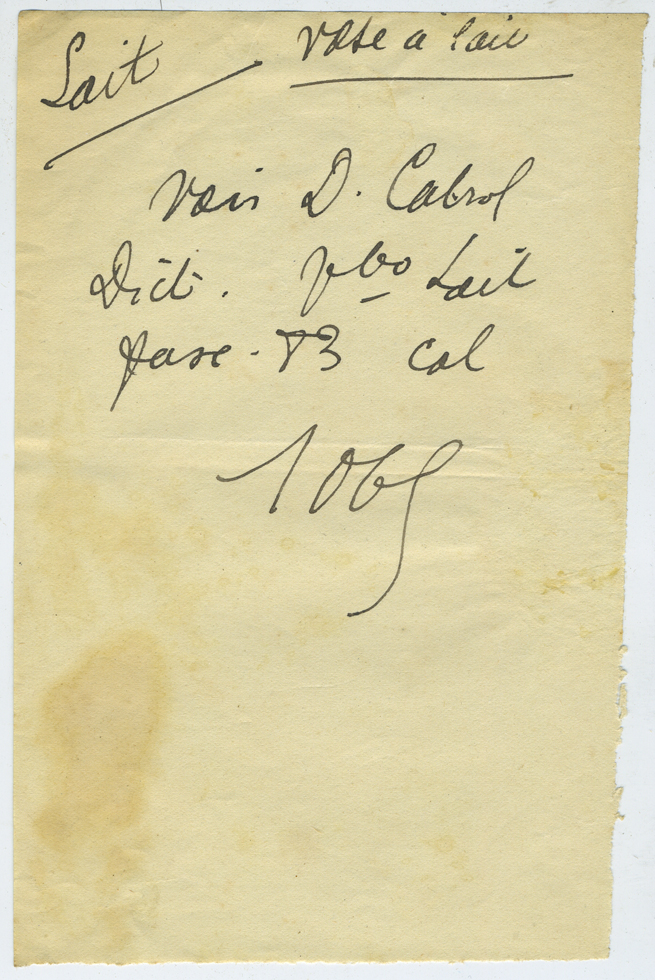 Lait vase à lait
voir D. Cabrol
Dict. vbo Lait
fasc. 83 col
1069